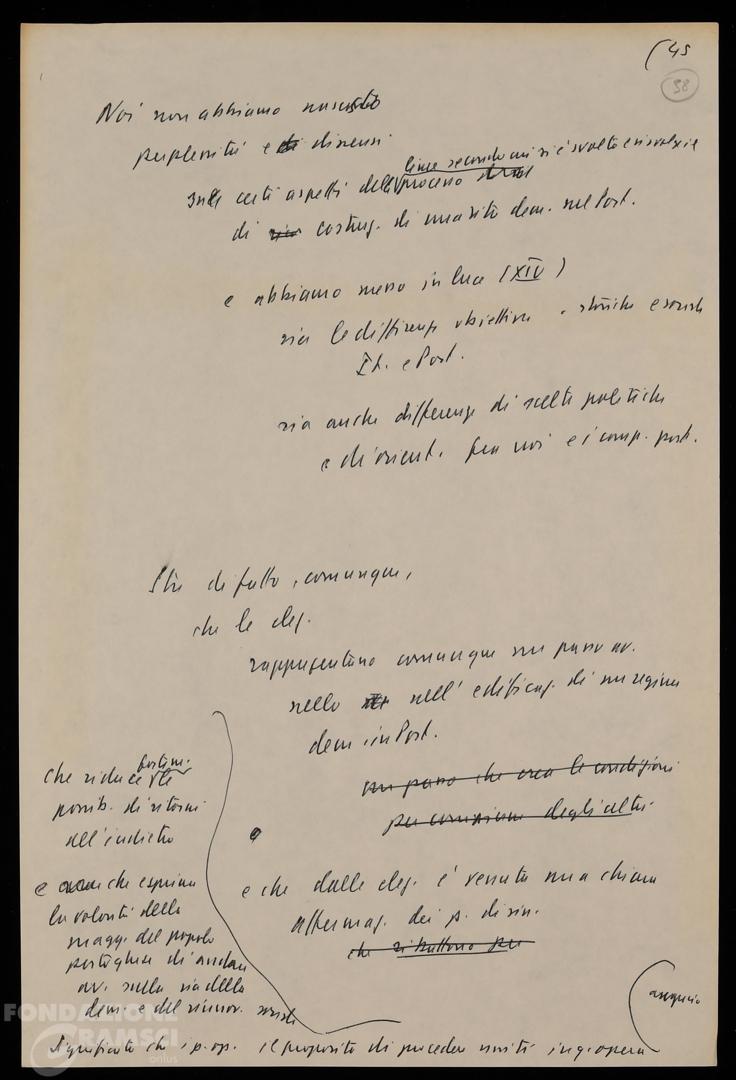 (45
38
Noi non abbiamo nascosto
perplessità e di dissensi
sulle certi aspetti della linea secondo cui si è svolto e si svolge il
processo
di costruz. di una vita dem. nel Port.
e abbiamo messo in luce (XIV)
sia le differenze obiettive, storiche e sociali
It. e Port.
sia anche differenze di scelte politiche
e di orient. fra noi e i comp. port.
Sta di fatto, comunque,
che le elez.
rappresentano comunque un passo av.
nello nell'edificaz. di un regime
dem. in Port.
un passo che crea le condizioni
degli altri
che riduce fortem. le
possib. di ritorni
all'indietro
e che esprime
la volontà della
magg. del popolo
portoghese di andare
av. sulla via della
dem. e del rinnov. sociale
e che dalle elez. è venuta una chiara
affermaz. dei p. di sin.
che si battono per
(auspicio
Significato che i p. op. il proposito di procedere uniti in quest'opera
FONDAZIONE
GRAMSCI
onlus